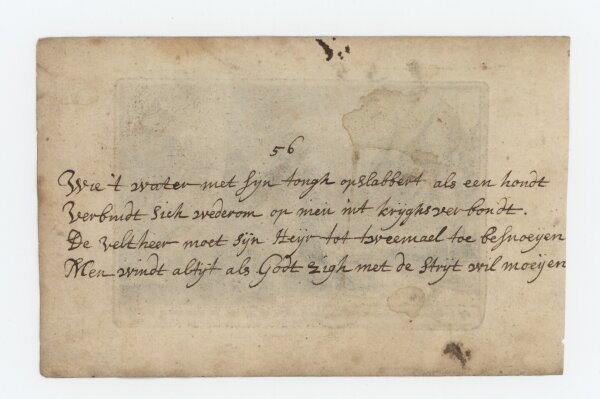 56
Wie 't water met sijn tongh opslabbert als een hondt
Verbindt sich wederom op nieu int krijghsverbondt.
De veltheer moet sijn Heijr tot tweemael toe besnoeijen
Men windt altijt als Godt zigh met de strijt wil moeijen